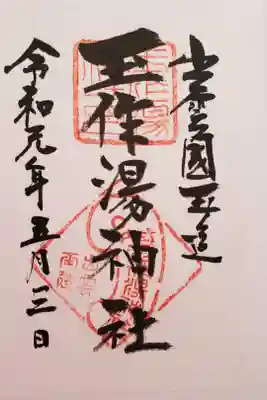 出雲國玉造
玉作湯神社
令和元年五月三日